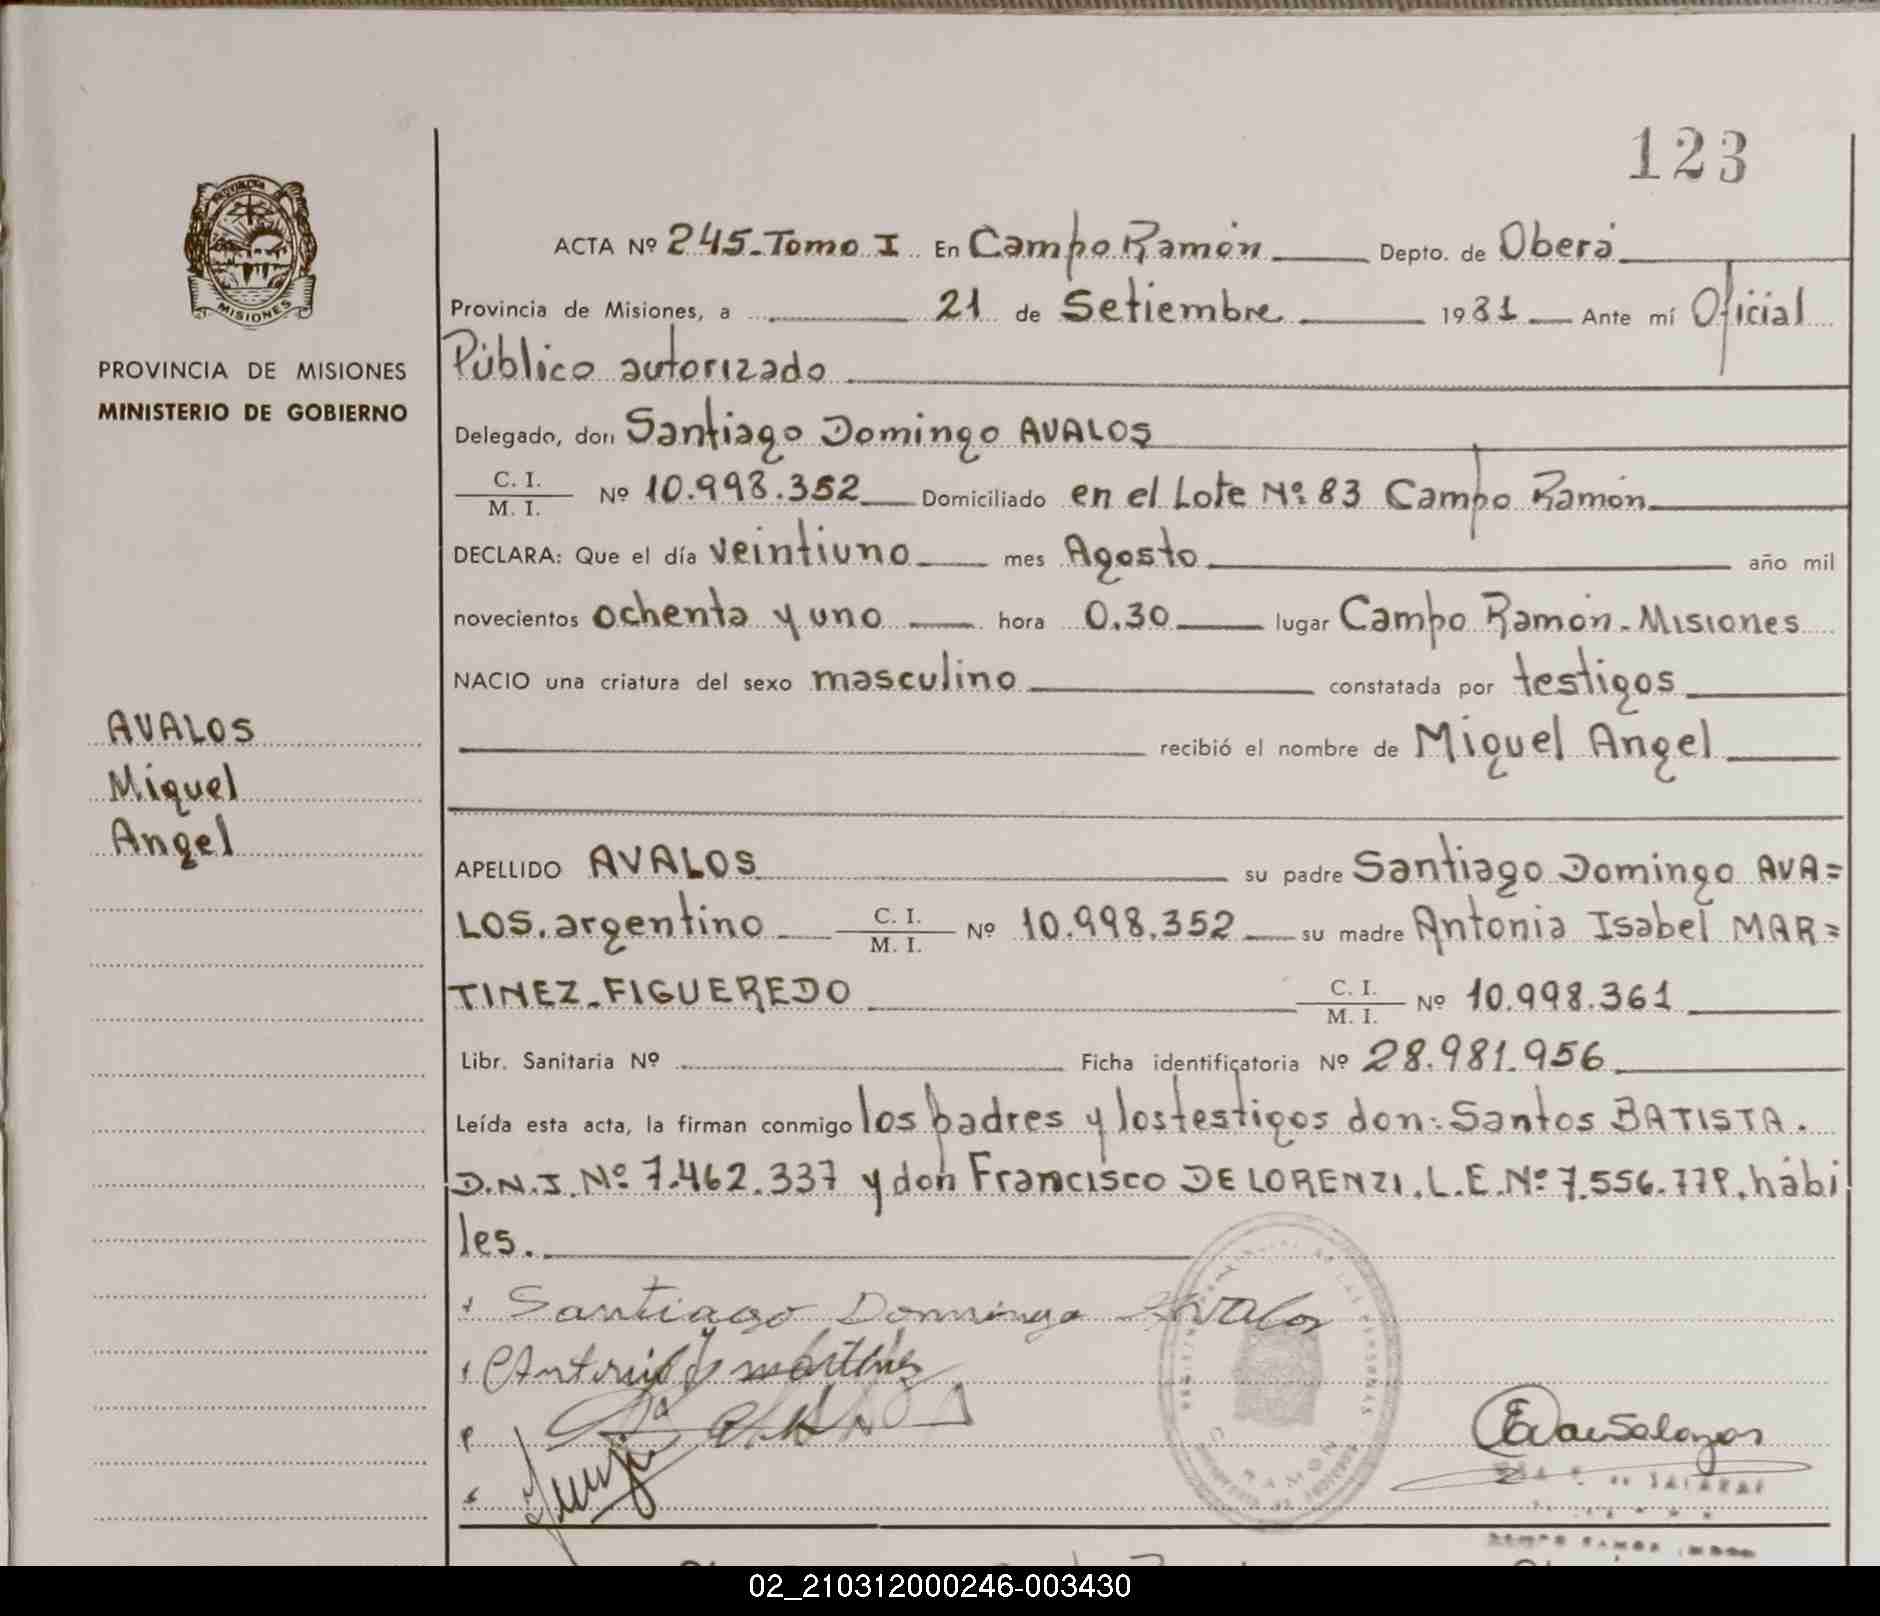 123
PROVINCIA DE MISIONES
MINISTERIO DE GOBIERNO
ACTA Nº 245. Tomo I En Campo Ramón Depto. de Oberá
Provincia de Misiones, a 21 de Setiembre 1981 Ante mí Oficial
Público autorizado
Delegado, don Santiago Domingo AVALOS
C. I.
M. I. Nº 10.998.352 Domiciliado en el Lote Nº 83 Campo Ramón
DECLARA: Que el día veintiuno mes Agosto año mil
novecientos ochenta y uno hora 0.30 lugar Campo Ramón - Misiones
NACIO una criatura del sexo masculino constatada por testigos
recibió el nombre de Miguel Angel
AVALOS
Miguel
Angel
APELLIDO AVALOS su padre Santiago Domingo AVA=
LOS. argentino C. I. M. I. Nº 10.998.352 su madre Antonia Isabel MAR=
TINEZ - FIGUEREDO C. I. M. I. Nº 10.998.361
Libr. Sanitaria Nº Ficha identificatoria Nº 28.981.956
Leída esta acta, la firman conmigo los padres y los testigos don: Santos BATISTA.
D.N.I. Nº 7.462.337 y don Francisco DE LORENZI. L.E. Nº 7.556.779, hábi
les.
Santiago Domingo Avalos
Antonia I martínez
MISIONES
02_210312000246-003430